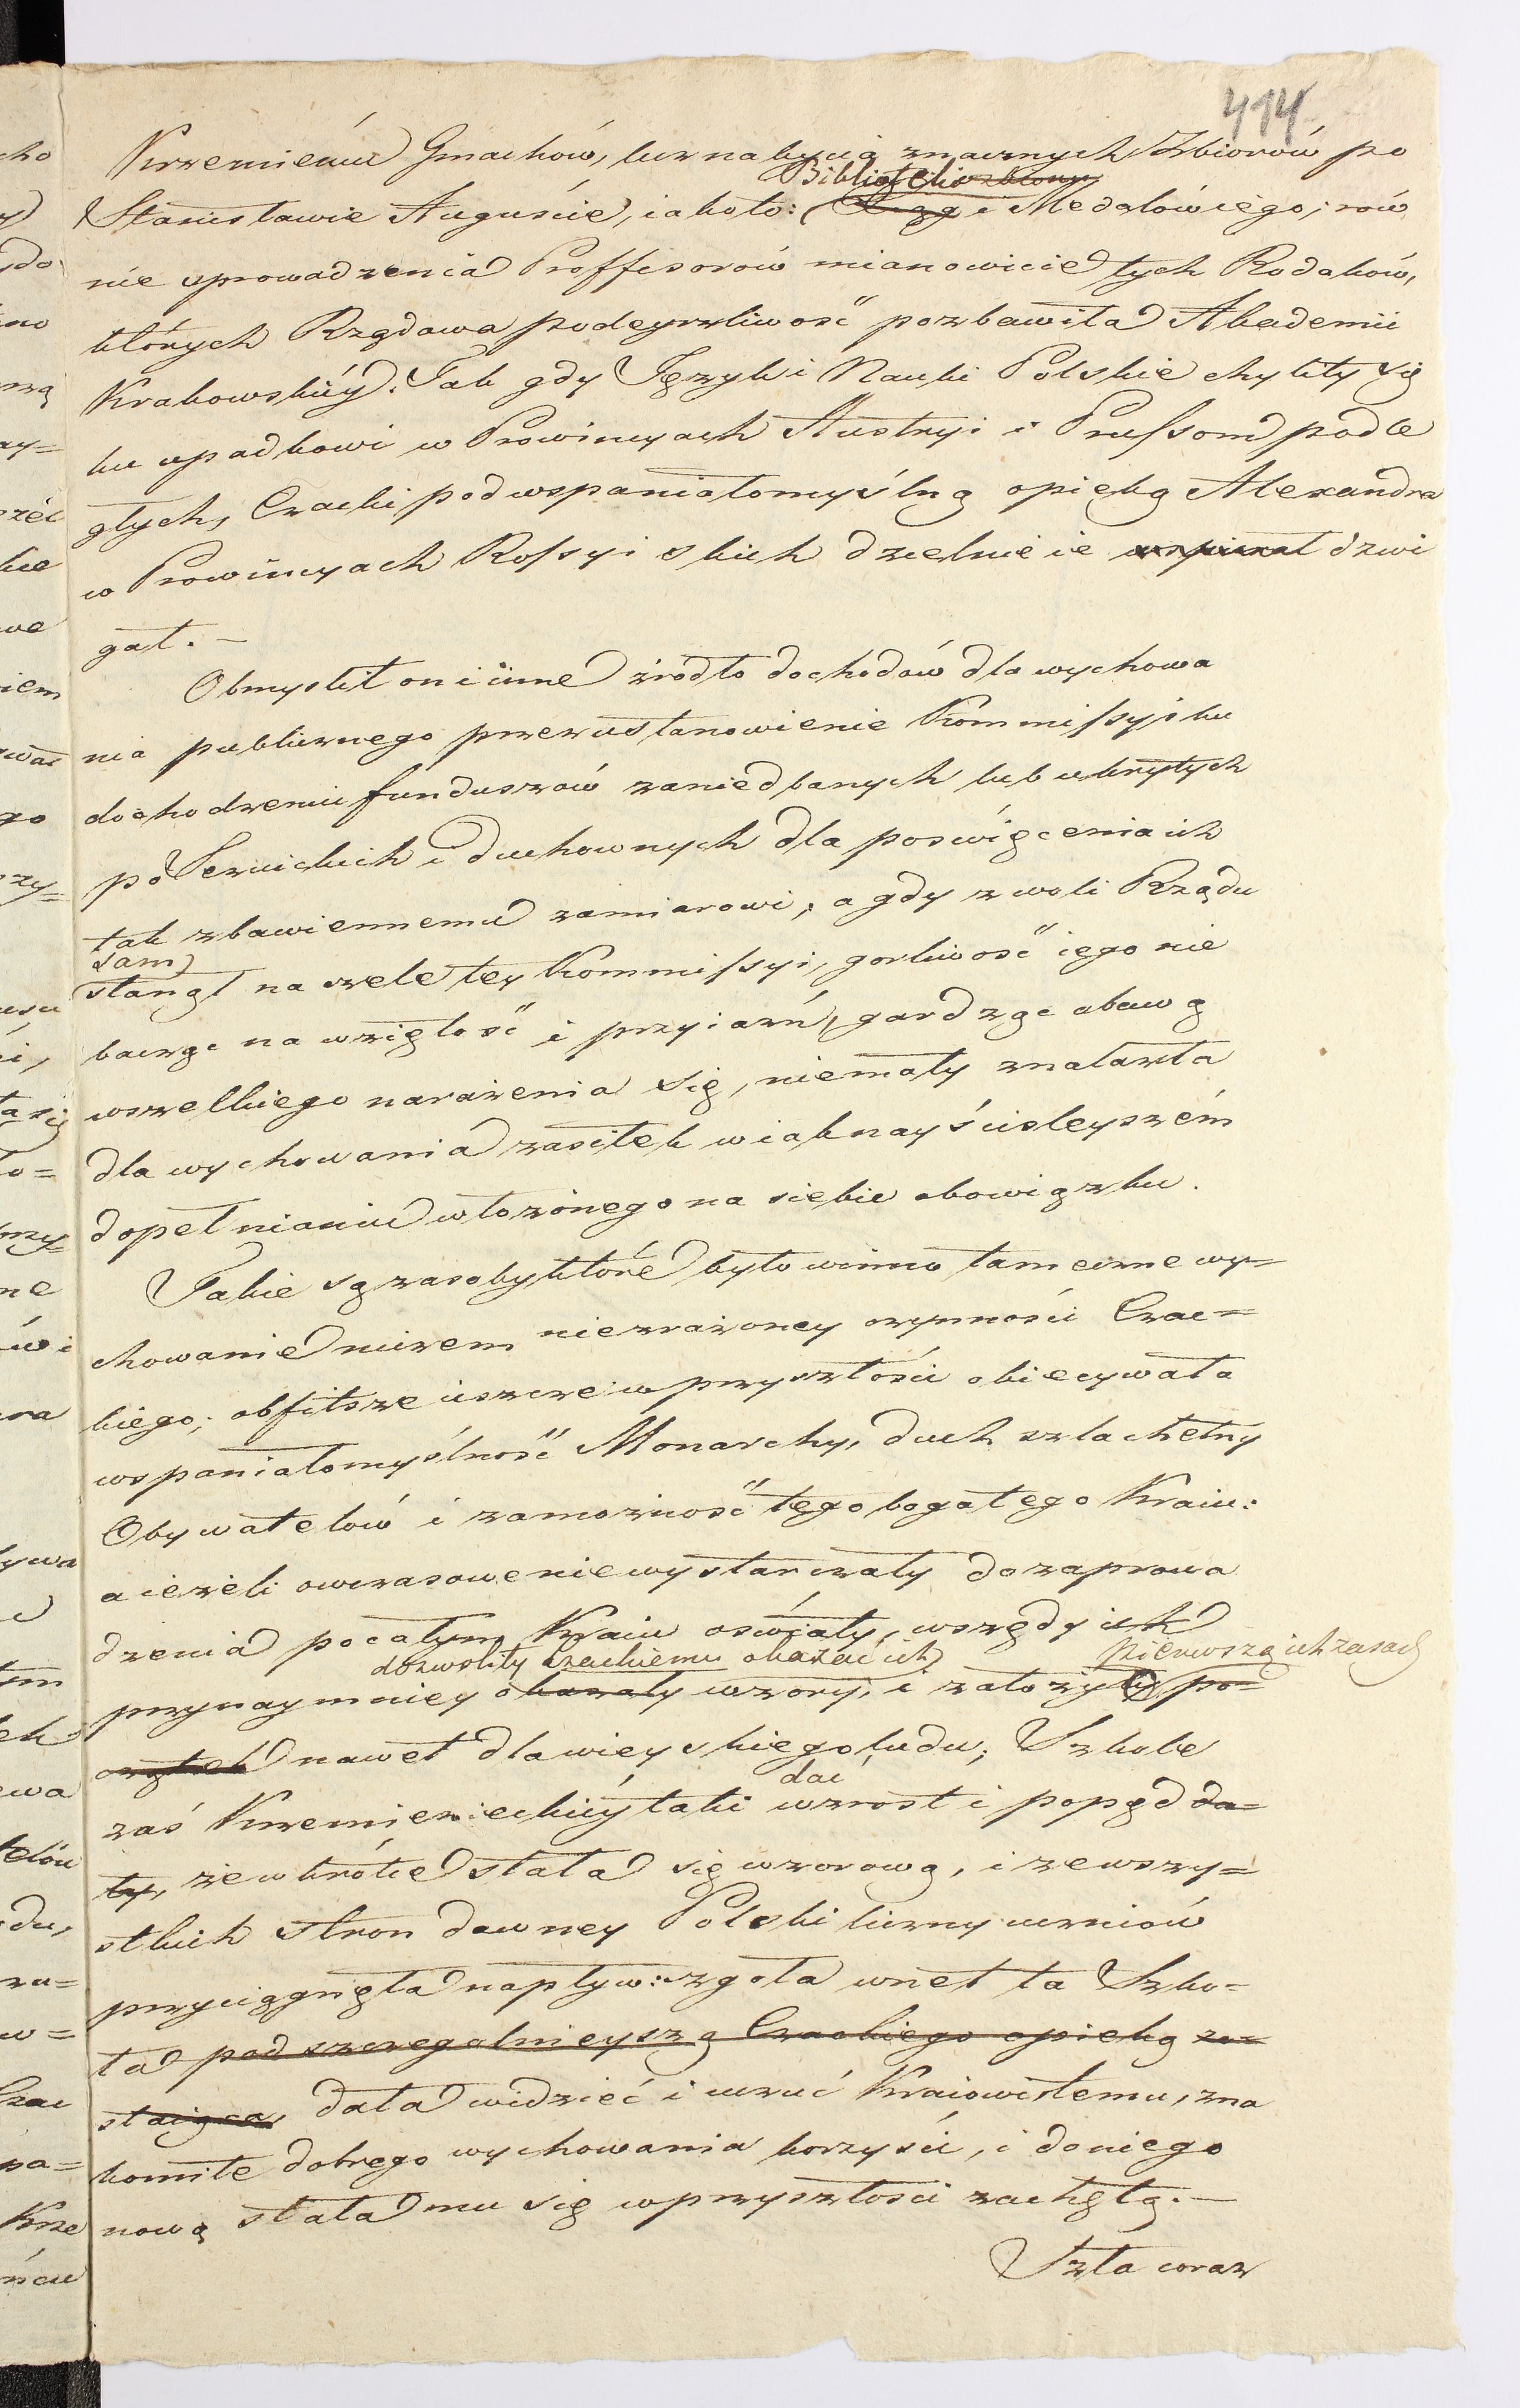 414
Krzemieńcu Gmachów, lecz nabycia znacznych Zbiorów po
Biblioteki
Stanisławie Auguście, iakoto: (Xiąg i Medalów iego; rów
nie sprowadzenia Proffesorów mianowicie tych Rodaków,
których Rządowa podeyrzliwość pozbawiła Akademii
Krakowskiéy. Tak gdy Języki i Nauki Polskie chyliły się
ku upadkowi w Prowincyach Austryi i Prussom podle
głych, Czacki pod wspaniałomyślną opieką Alexandra
w Prowincyach Rossyiskich dzielnie ie wspierał dzwi
gał. —
Obmyślił on i inne źrodło dochodów dla wychowa
nia publicznego przez ustanowienie Kommissyi ku
dochodzeniu funduszów zaniedbanych lub ukrytych
po Jezuickich i duchownych dla poswięcenia ich
tak zbawiennemu zamiarowi; a gdy z woli Rządu
sam
stanął na czele tey Kommissyi, gorliwość iego nie
bacząc na wziętość i przyiaźń, gardząc obawą
wszelkiego narażenia się, niemały znalazła
dla wychowania zasiłek w iak nayściśleyszém
dopełnianiu włożonego na siebie obowiązku.
Takie są zasoby które było winno tameczne wy=
chowanie niczem niezrażoney czynności Czac=
kiego; obfitsze ieszcze w przyszłości obiecywała
wspaniałomyślność Monarchy, duch szlachetny
Obywatelów i zamożność tego bogatego Kraiu:
a ieżeli owczasowe niewystarczały do zaprowa
dzenia po całym Kraiu oświaty, wszędy ich
dozwoliły Czackiemu okazać ich pierwszą ich zasad
przynaymniey okazały wzory, i założyły po=
czątek nawet dla wieyskiego ludu; Szkole
dać
zaś Krzemienieckiéy taki wzrost i popęd da=
ły, że wkrótce stała się wzorową, i ze wszy=
stkich stron dawney Polski liczny uczniów
przyciągnęła napływ: zgoła wnet ta Szko=
ła pod szczegolnieyszą Czackiego opieką zo=
staiąca, dała widzieć i uczuć Kraiowi temu, zna
komite dobrego wychowania korzyści, i do niego
nową stała mu się w przyszłości zachętą. —
Szła coraz